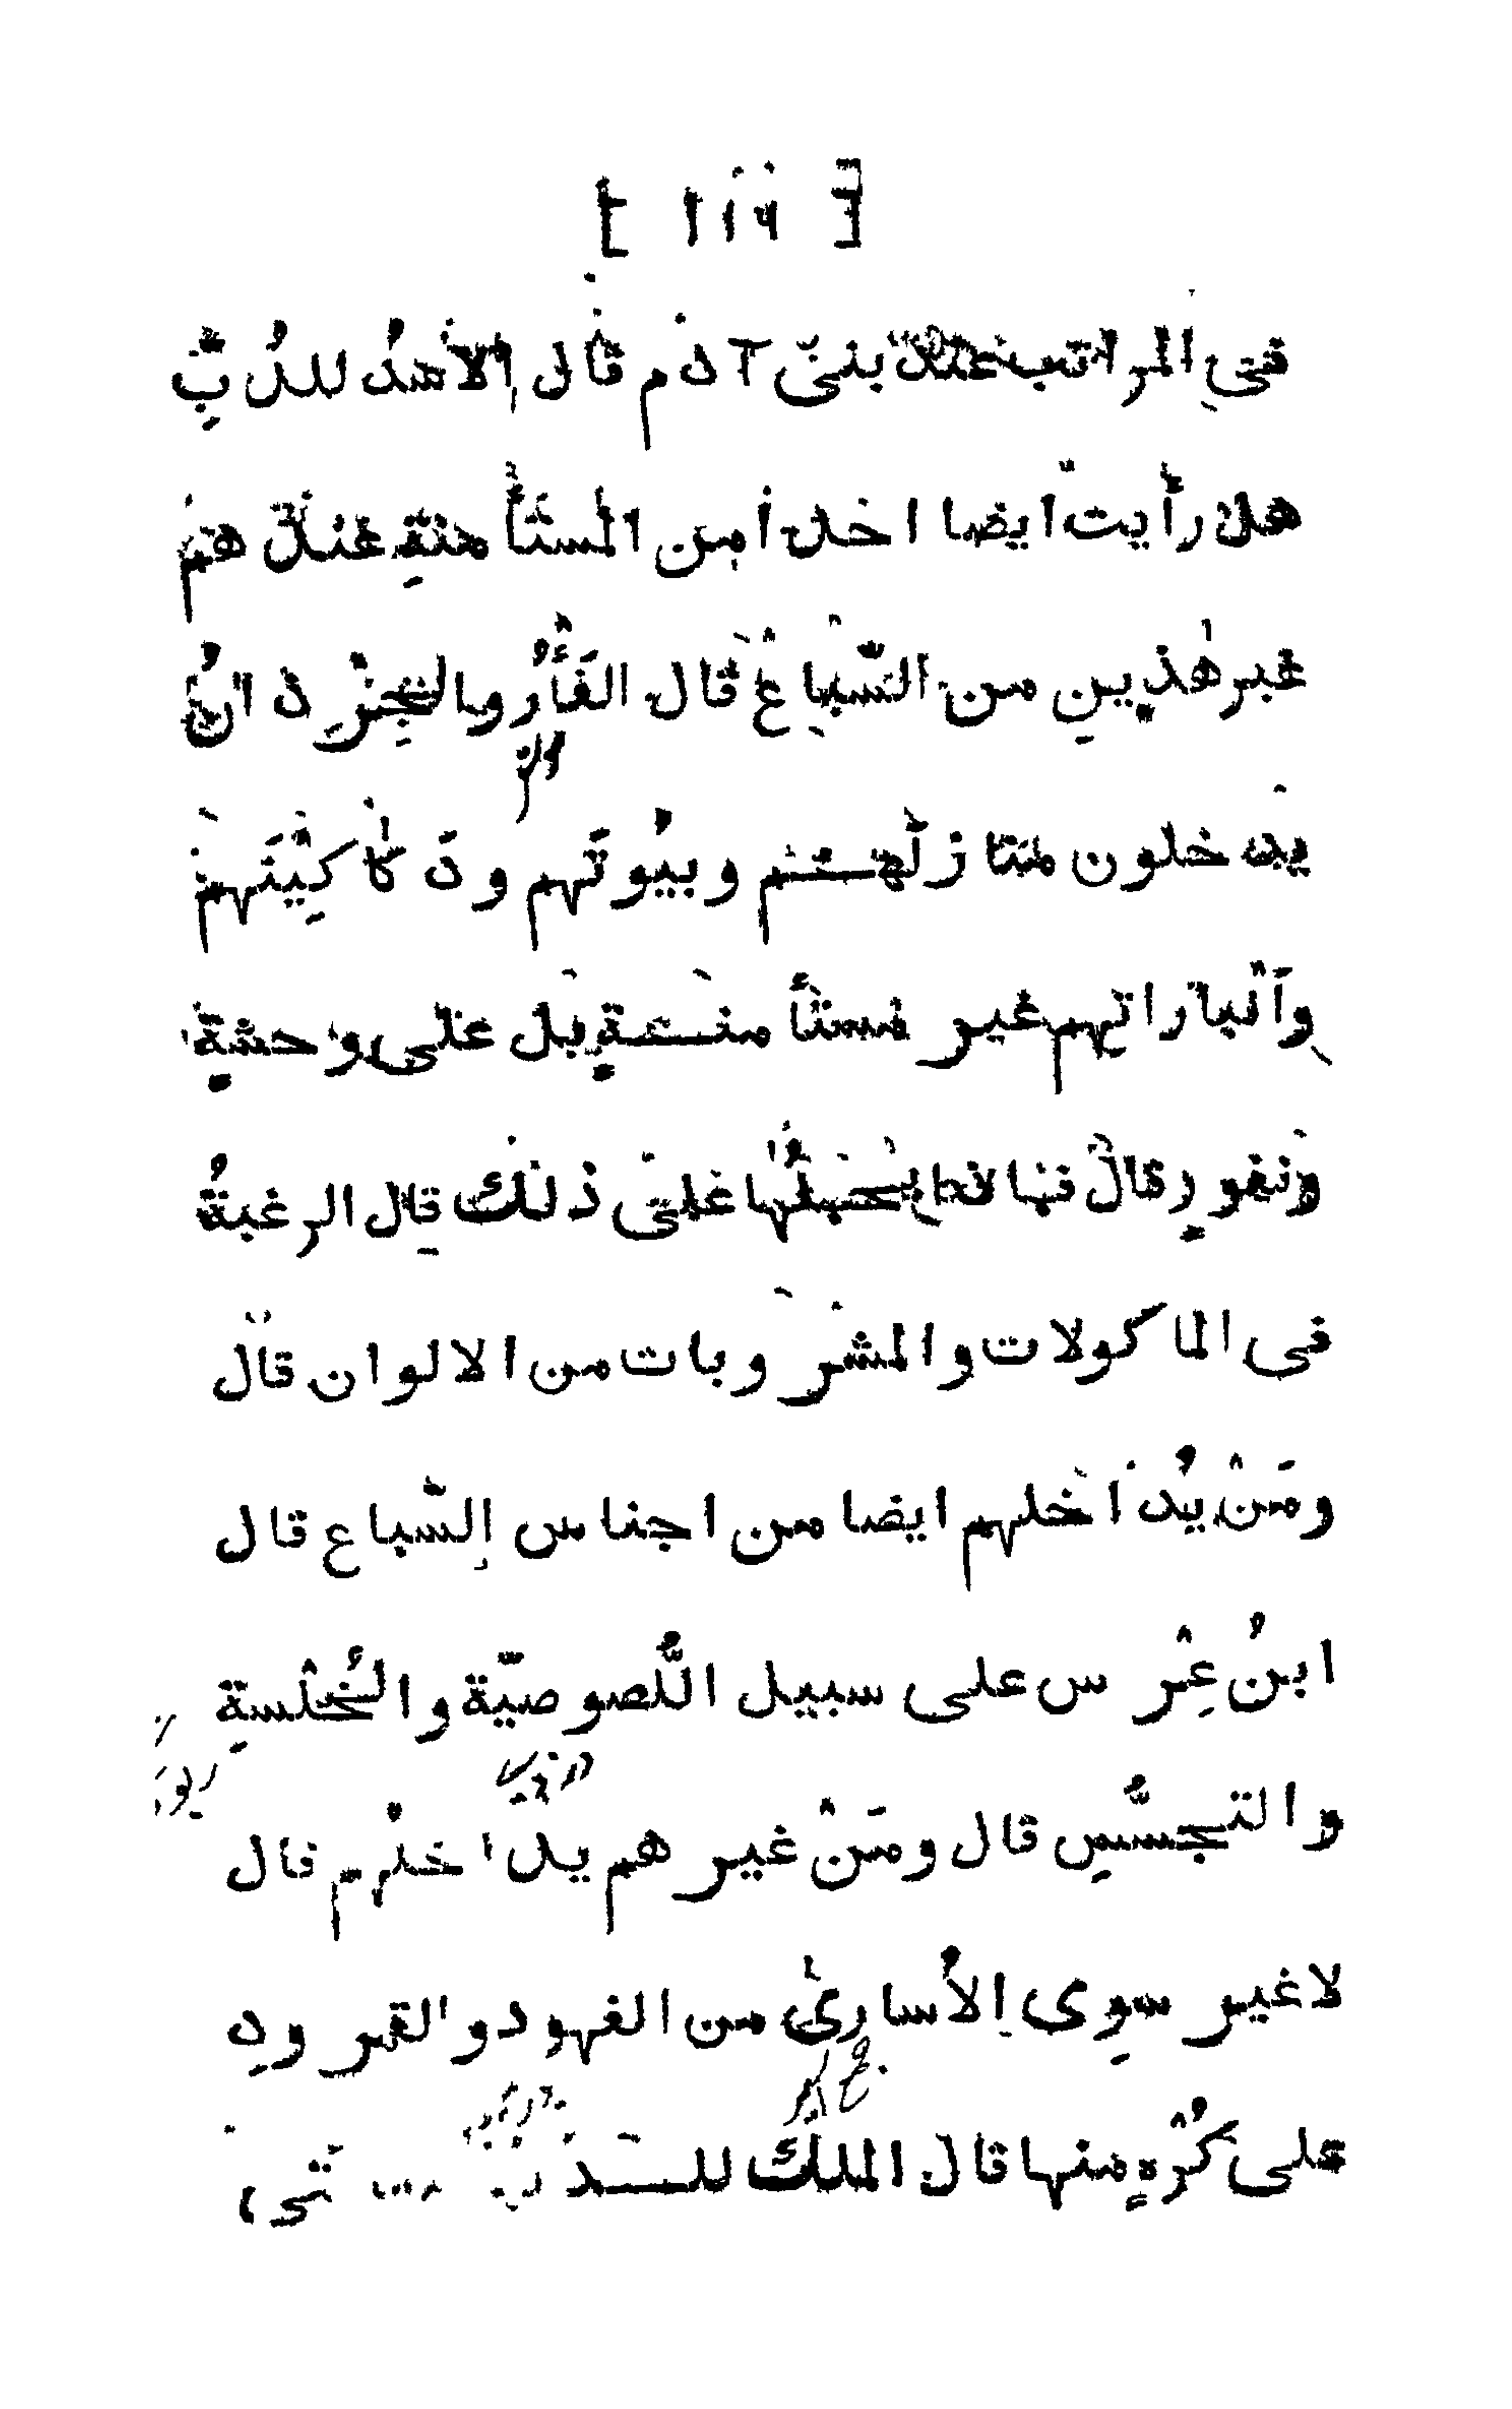 فى المراتب عند بنى آدم قال الاسدُ للدُبِّ
هل رأيت ايضا احدا من المستأمنةِ عندهم
غير هٰذينِ من السّباع قال الفَأْرُ والجُرَذانُ
يدخلون منازلهم وبيُوتَهم ودَكاكِيْنَهم
وأنباراتهم غير مستأمنةٍ بل على وحشةٍ
ونفورٍ قال فما ذا يحملُها على ذلك قال الرغبةُ
فى الماكولات والمشروبات من الالوان قال
ومَنْ يُداخلهم ايضا من اجناس السّباع قال
ابنُ عِرْس على سبيل اللُّصوصيّة والخُلْسةِ
والتجسُّسِ قال ومَنْ غيرهم يداخلهم قال
لا غير سِوى الأسارىٰ من الفهود والقرودِ
على كُرْهٍ منها قال الملك للدبّ متى